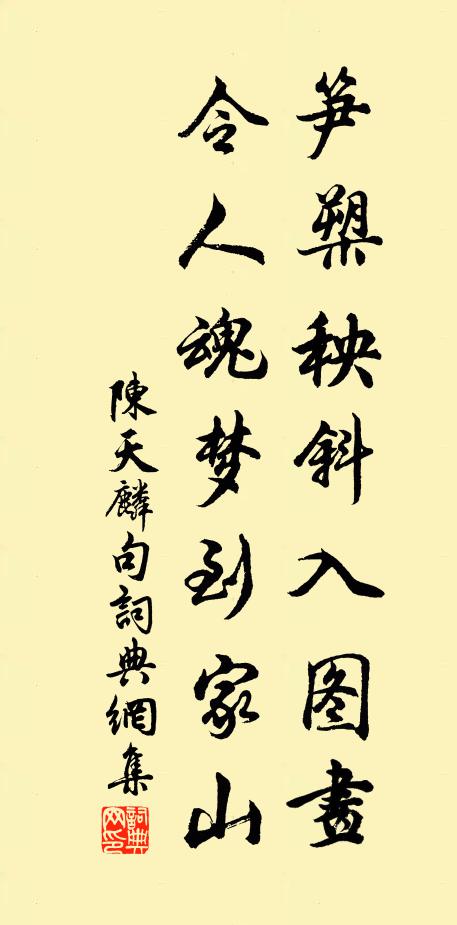 笋槊秧斜入图畫
令人魂梦到家山
陳天麟句詞典網集
詞典网印